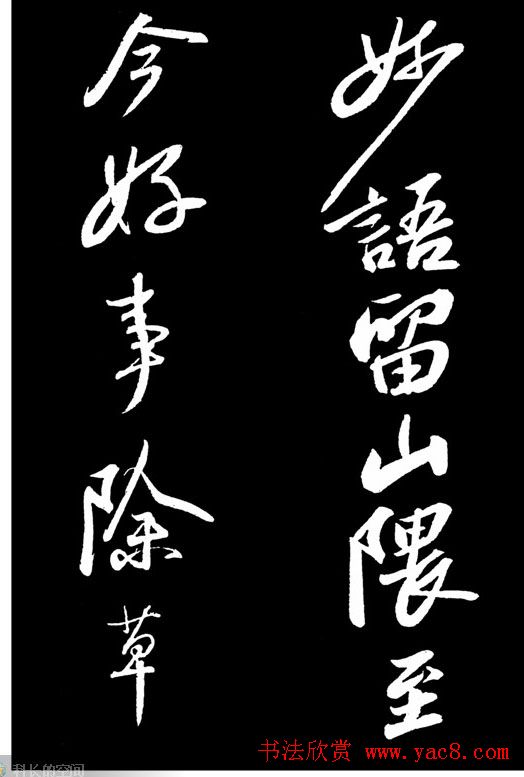 妙語留山隈至
今好事除草
书法欣赏 www.yac8.com
科长的空间